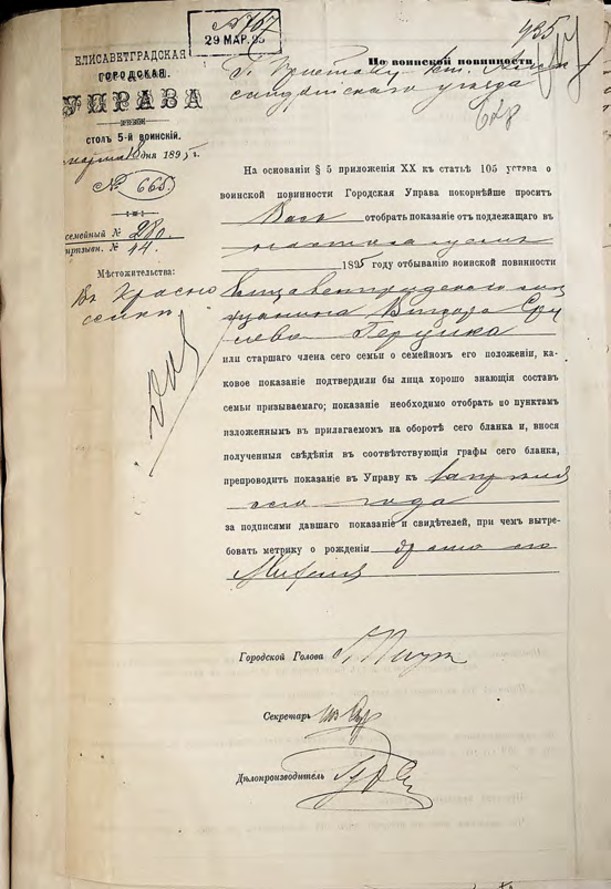 № 767
29 МАР. 95
435
ЕЛИСАВЕТГРАДСКАЯ
ГОРОДСКАЯ
УПРАВА
столъ 5-й воинскій.
марта 18 дня 1895 г.
№ 665.
семейный № 280.
призывн. № 14.
Мѣстожительства:
По воинской повинности
Г. Приставу
уѣзда
628
На основаніи § 5 приложенія XX къ статьѣ 105 устава о
воинской повинности Городская Управа покорнѣйше проситъ
Васъ отобрать показаніе отъ подлежащаго въ
1895 году отбыванію воинской повинности
Елисаветградскаго
или старшаго члена сего семьи о семейномъ его положеніи, ка-
ковое показаніе подтвердили бы лица хорошо знающія составъ
семьи призываемаго; показаніе необходимо отобрать по пунктамъ
изложеннымъ въ прилагаемомъ на оборотѣ сего бланка и, внося
полученныя свѣдѣнія въ соотвѣтствующія графы сего бланка,
препроводить показаніе въ Управу къ
сего года
за подписями давшаго показаніе и свидѣтелей, при чемъ вытре-
бовать метрику о рожденіи брата его
Михеля
Городской Голова
Секретарь
Дѣлопроизводитель